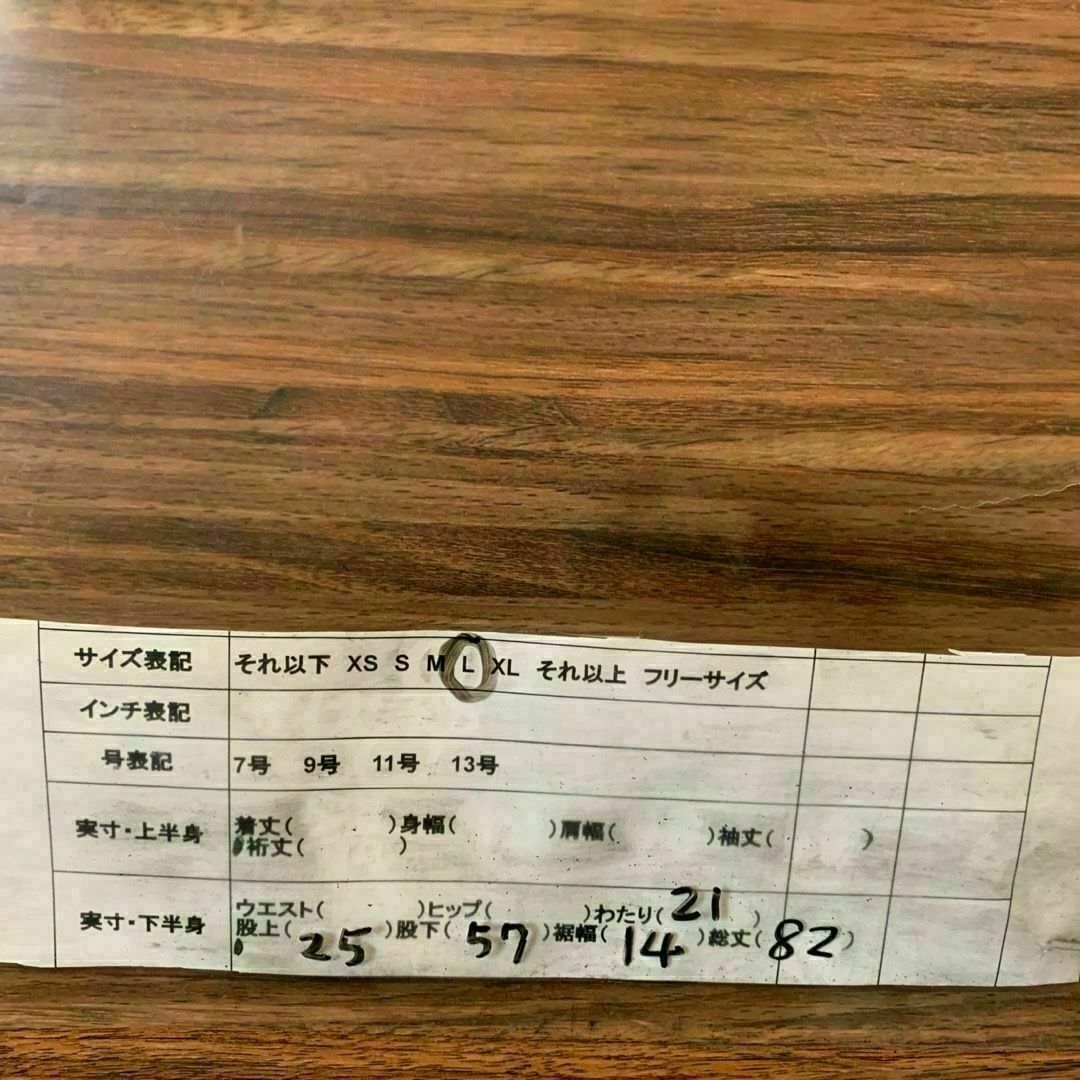 サイズ表記 それ以下 XS S M L XL それ以上 フリーサイズ
インチ表記
号表記 7号 9号 11号 13号
実寸・上半身 着丈( )身幅( )肩幅( )袖丈( )
裄丈( )
実寸・下半身 ウエスト( )ヒップ( )わたり(21)
股上(25)股下(57)裾幅(14)総丈(82)